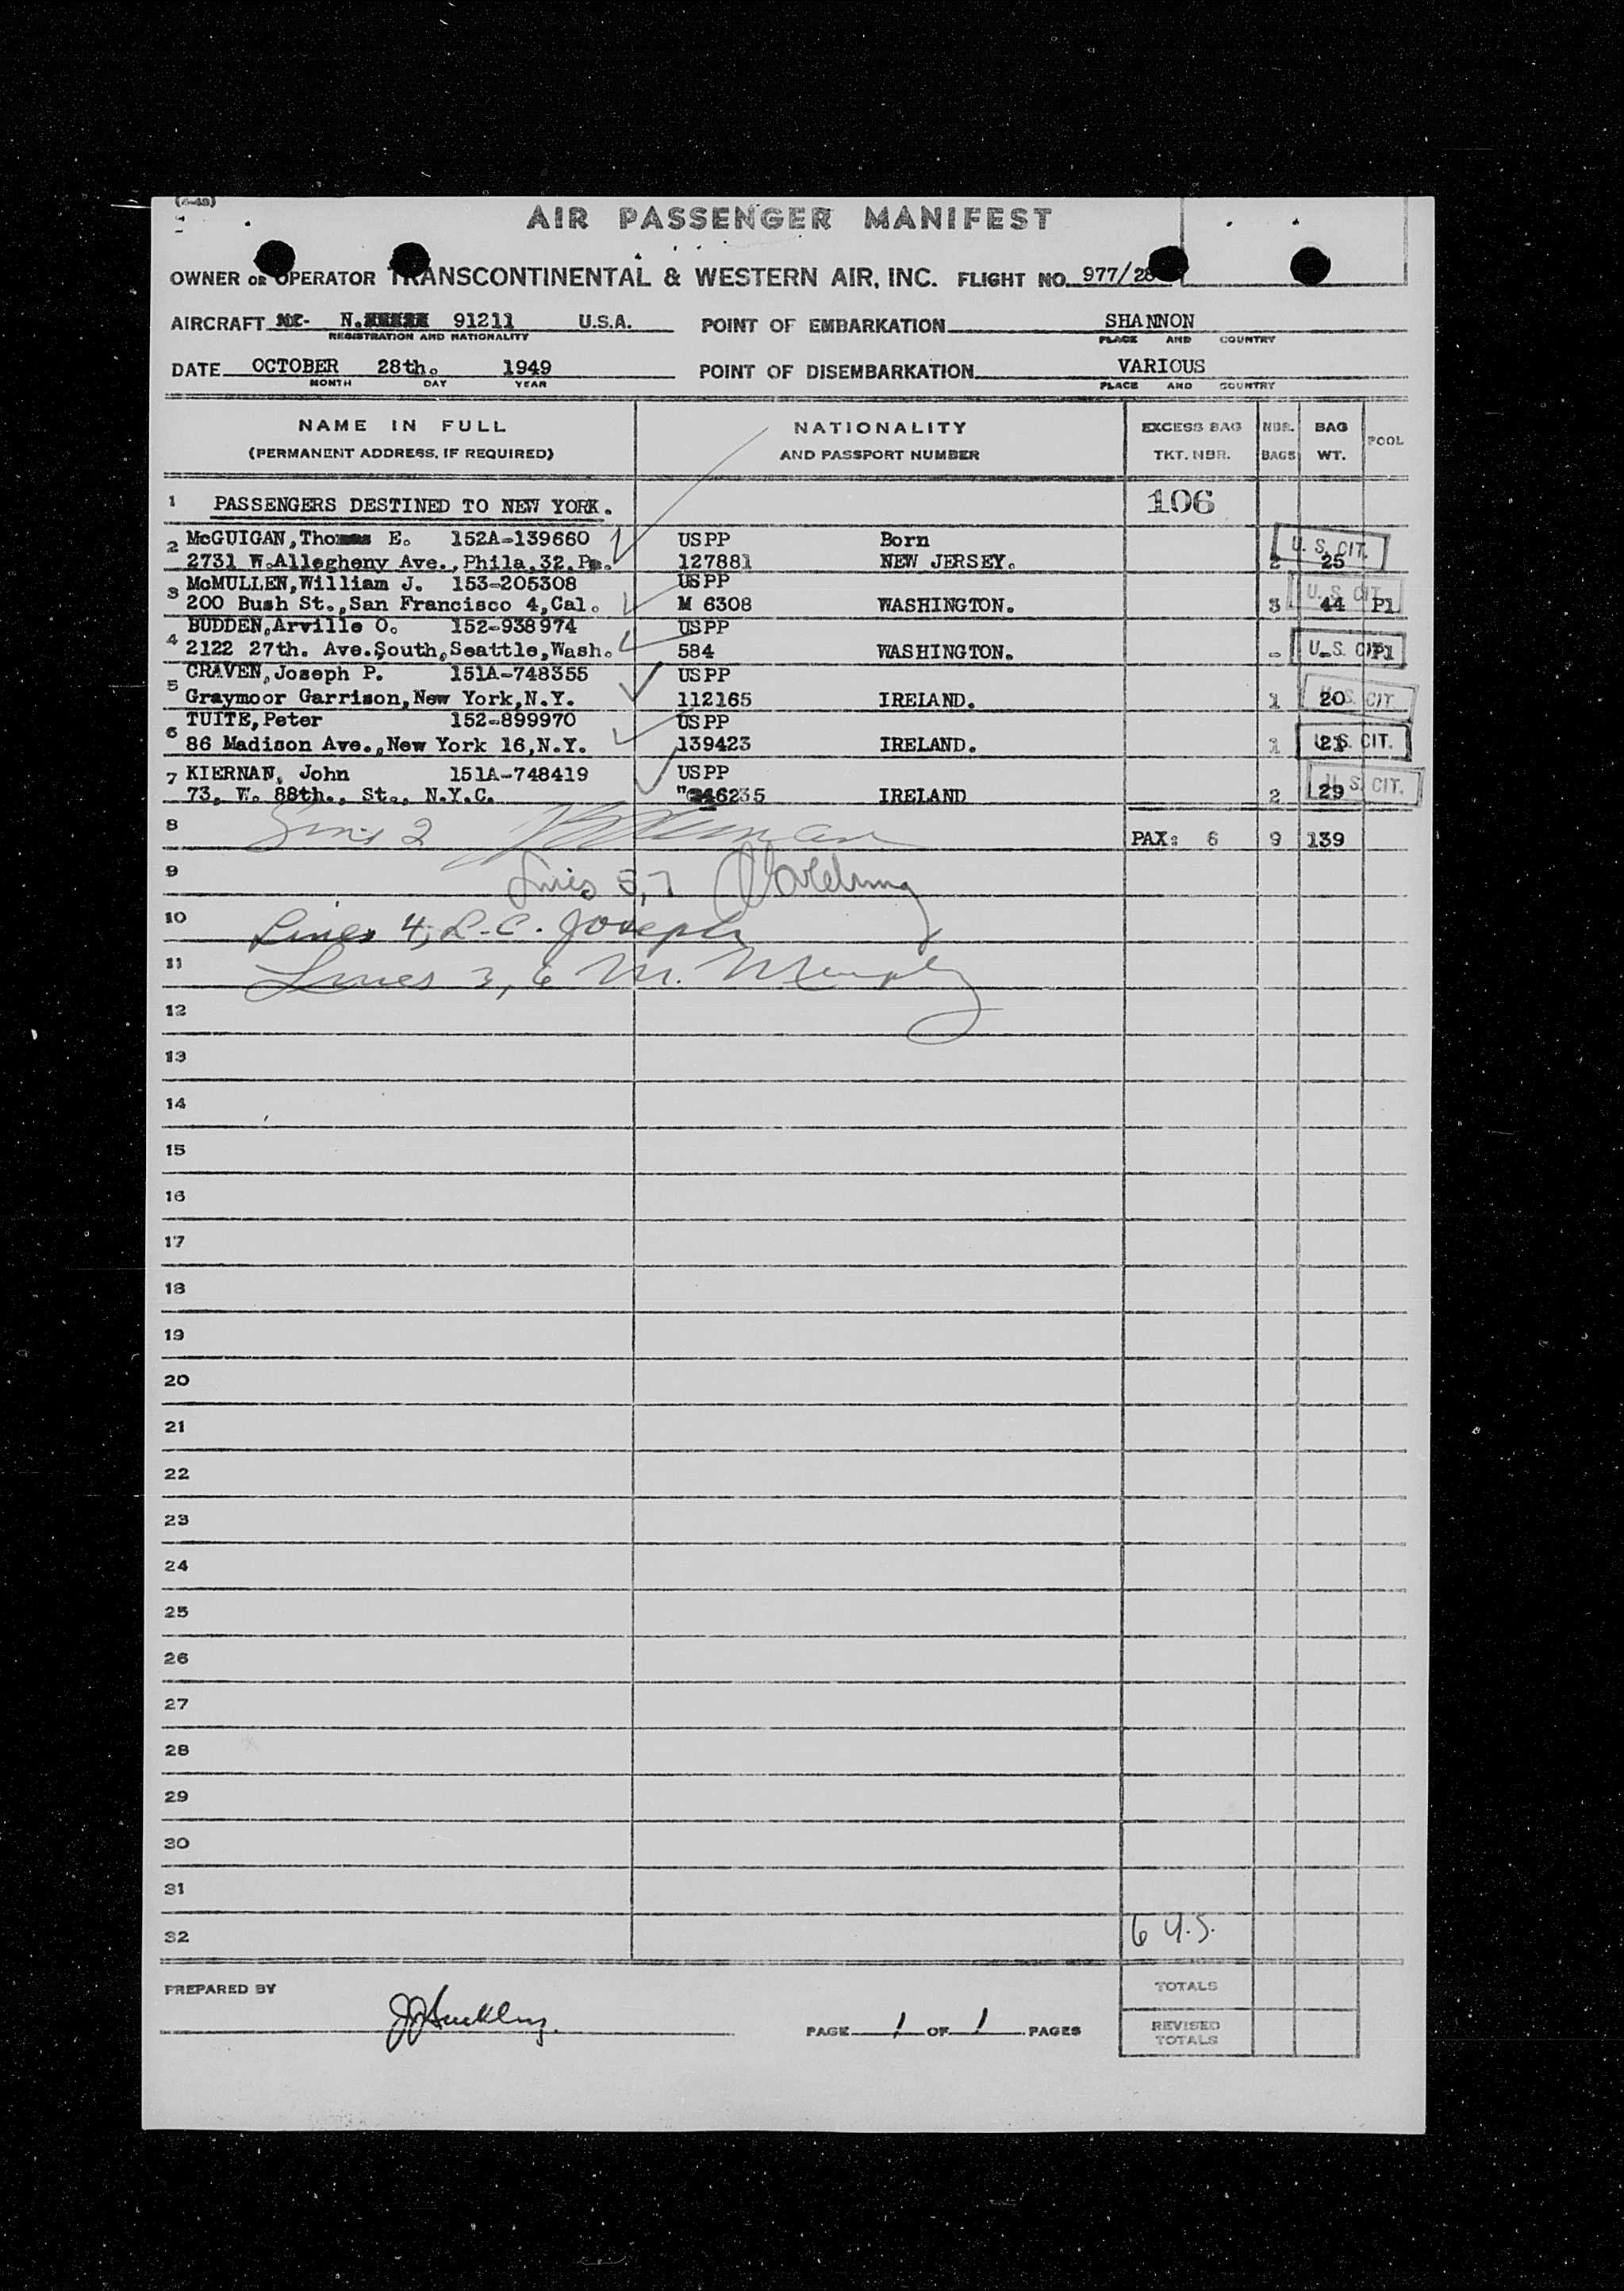 (2-48)
AIR PASSENGER MANIFEST
OWNER OR OPERATOR TRANSCONTINENTAL & WESTERN AIR, INC. FLIGHT NO. 977/28
AIRCRAFT N. 91211 U.S.A. POINT OF EMBARKATION SHANNON
REGISTRATION AND NATIONALITY PLACE AND COUNTRY
DATE OCTOBER 28th. 1949 POINT OF DISEMBARKATION VARIOUS
MONTH DAY YEAR PLACE AND COUNTRY
NAME IN FULL NATIONALITY EXCESS BAG NBR. BAG POOL
(PERMANENT ADDRESS, IF REQUIRED) AND PASSPORT NUMBER TKT. NBR. BAGS WT.
1 PASSENGERS DESTINED TO NEW YORK. 106
2 McGUIGAN, Thomas E. 152A-139660 USPP Born U. S. CIT.
2731 W.Allegheny Ave., Phila.32.Pa. 127881 NEW JERSEY. 2 25
3 McMULLEN, William J. 153-205308 USPP U. S. CIT.
200 Bush St., San Francisco 4, Cal. M 6308 WASHINGTON. 3 44 P1
BUDDEN, Arville O. 152-938974 USPP
4 2122 27th. Ave.South, Seattle, Wash. 584 WASHINGTON. - - P1 U. S. CIT.
5 CRAVEN, Joseph P. 151A-748355 USPP
Graymoor Garrison, New York, N.Y. 112165 IRELAND. 1 20 U. S. CIT.
6 TUITE, Peter 152-899970 USPP
86 Madison Ave., New York 16, N.Y. 139423 IRELAND. 1 21 U. S. CIT.
7 KIERNAN, John 151A-748419 USPP
73, W. 88th., St., N.Y.C. 46235 IRELAND 2 29 U. S. CIT.
8 Line 2 PAX: 6 9 139
9 Lines 5, 7
10 Lines 4, L. C. Joseph
11 Lines 3, 6 M. Murphy
12
13
14
15
16
17
18
19
20
21
22
23
24
25
26
27
28
29
30
31
32 6 U.S.
PREPARED BY TOTALS
PAGE 1 OF 1 PAGES REVISED TOTALS